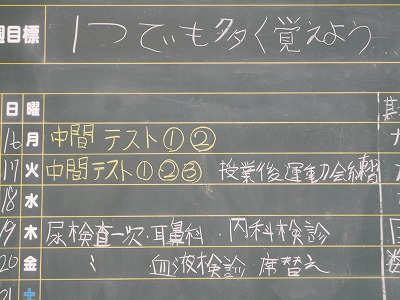 週目標 1つでも多く覚えよう
日 曜
16 月 中間テスト① ②
17 火 中間テスト① ②③ 授業後運動会練習
18 水
19 木 尿検査一次・耳鼻科・内科検診
20 金 〃 血液検診 席替え
21 土